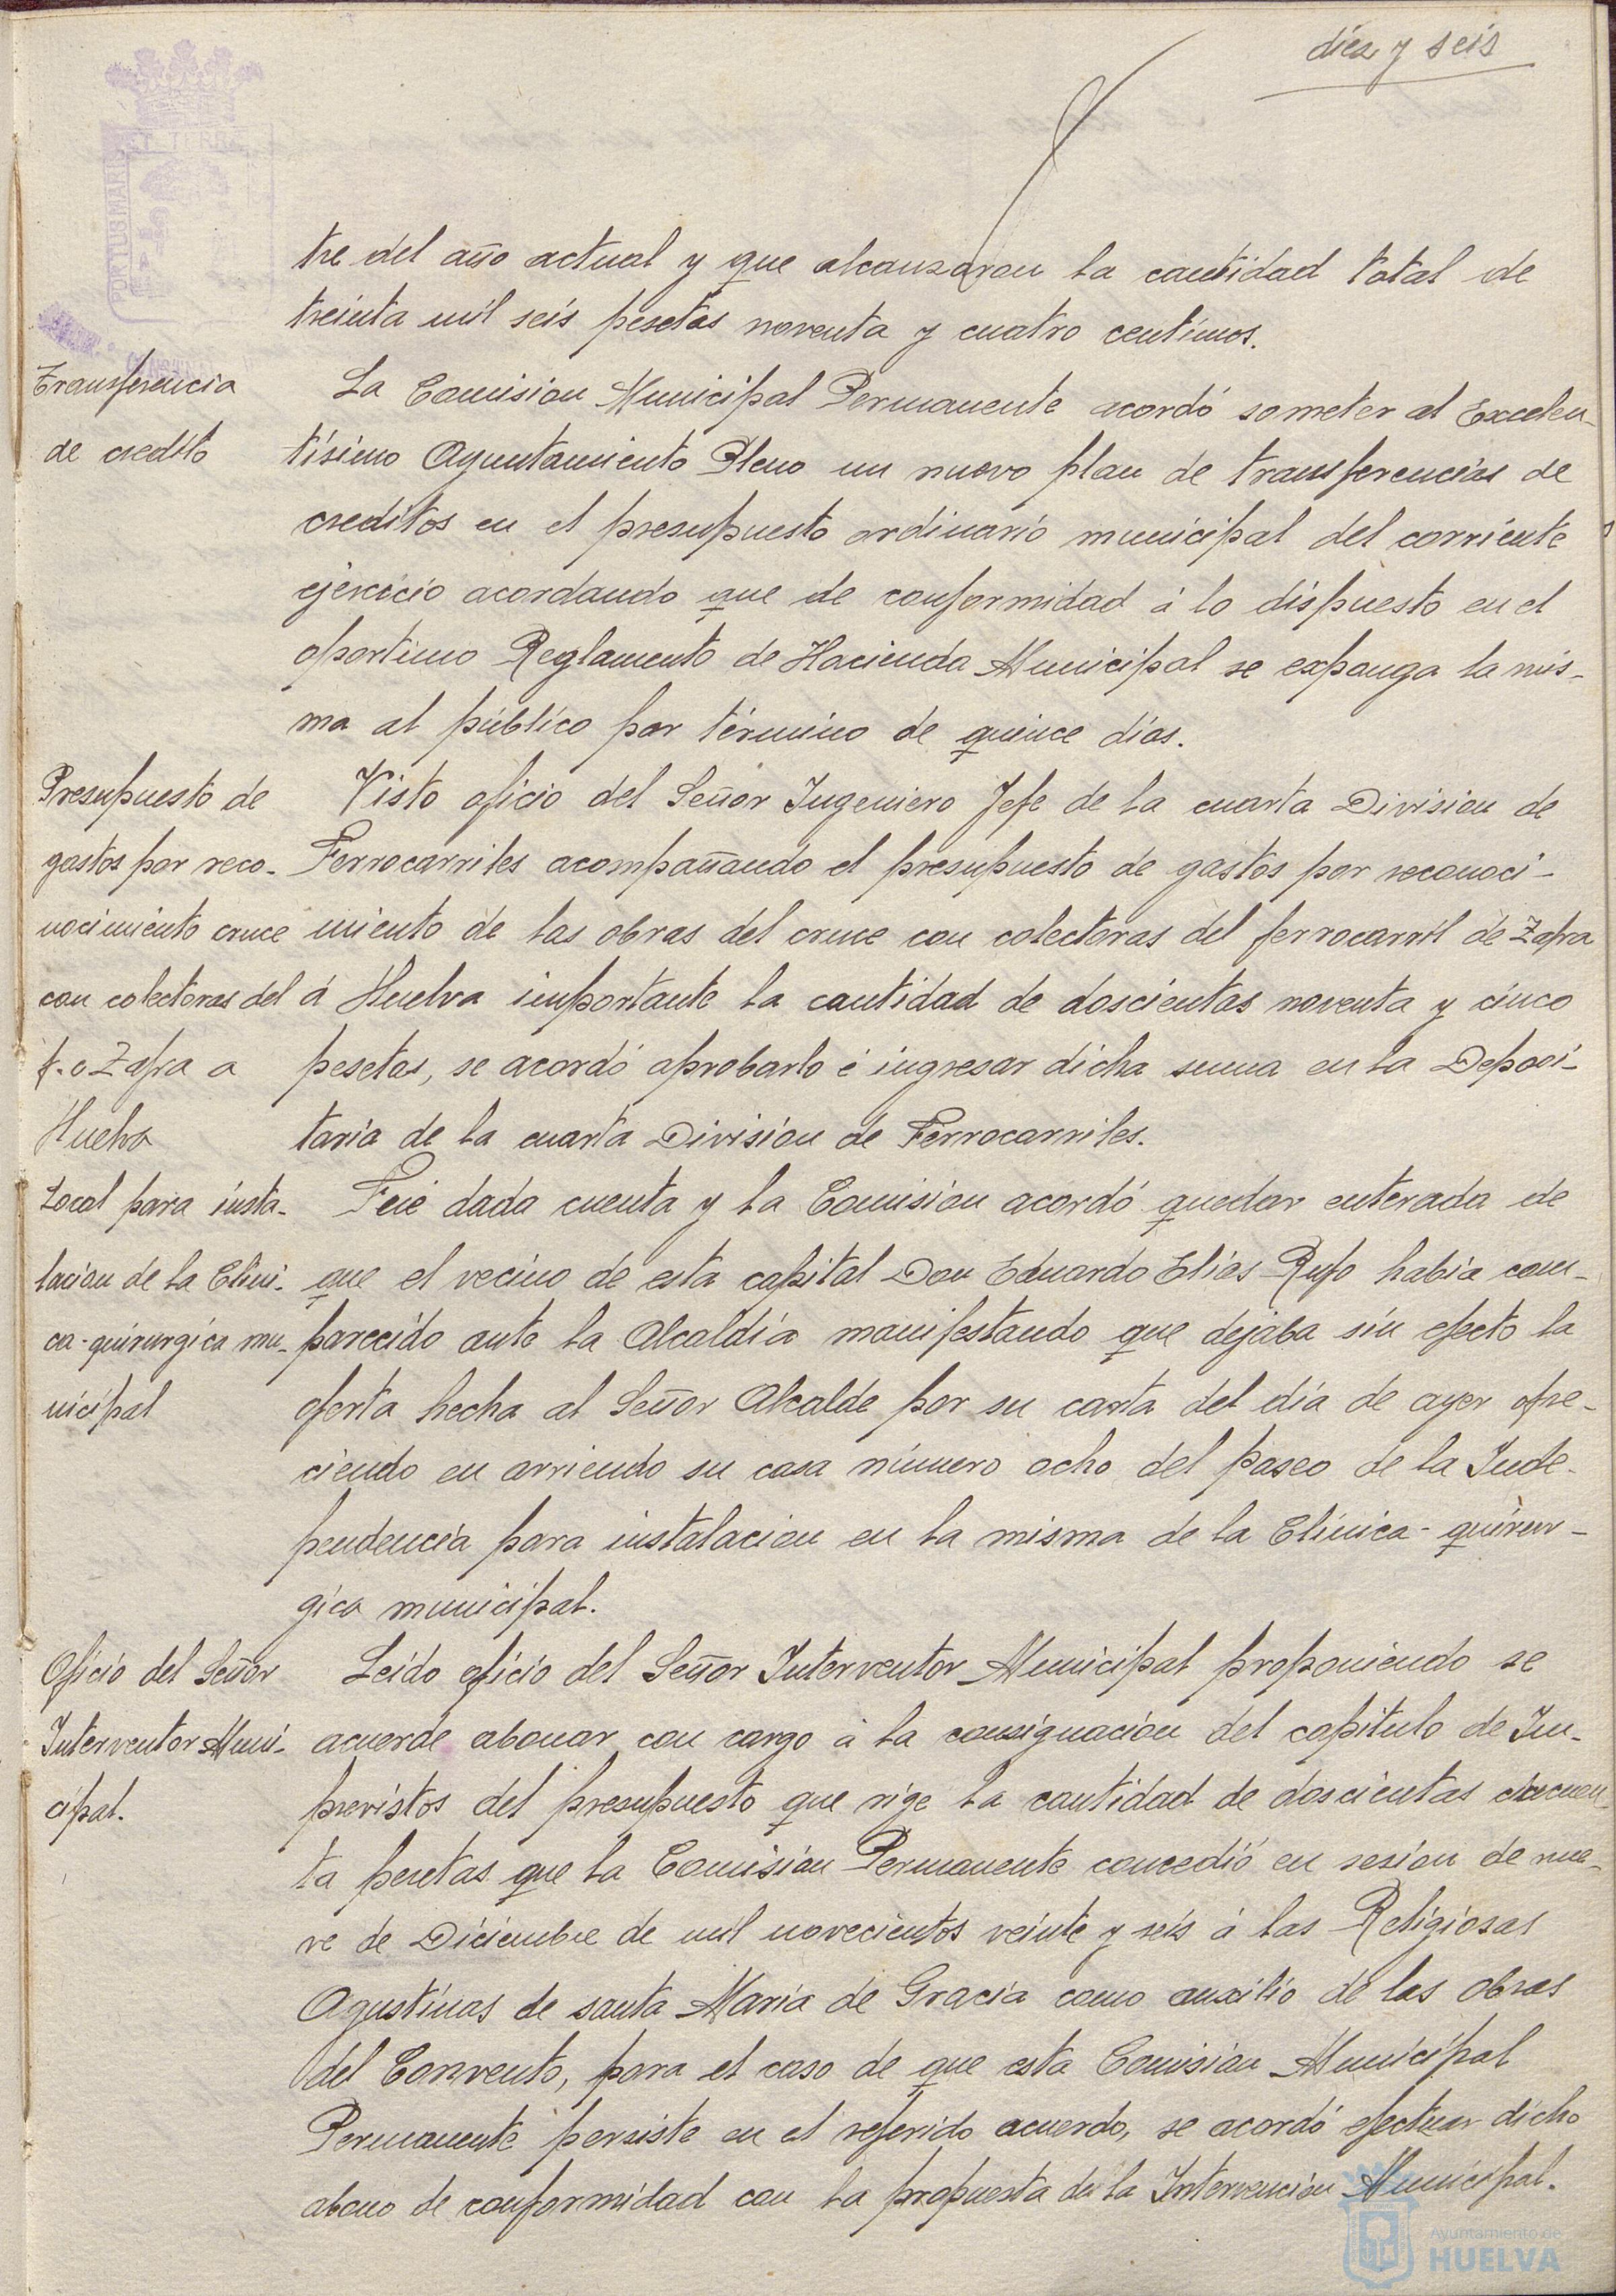 diez y seis
PORTUS MARIS ET TERRE
tre del año actual y que alcanzaron la cantidad total de
treinta mil seis pesetas noventa y cuatro centimos.
Transferencia
de credito
La Comision Municipal Permanente acordó someter al Excelen-
tísimo Ayuntamiento Pleno un nuevo plan de transferencias de
creditos en el presupuesto ordinario municipal del corriente
ejercicio acordando que de conformidad á lo dispuesto en el
oportuno Reglamento de Hacienda Municipal se exponga la mis-
ma al público por término de quince días.
Presupuesto de
gastos por reco-
nocimiento cruce
con colectoras del
f. c Zafra a
Huelva
Visto oficio del Señor Ingeniero Jefe de la cuarta Division de
Ferrocarriles acompañando el presupuesto de gastos por reconoci-
miento de las obras del cruce con colectoras del ferrocarril de Zafra
á Huelva importante la cantidad de doscientas noventa y cinco
pesetas, se acordó aprobarlo é ingresar dicha suma en la Deposi-
taria de la cuarta División de Ferrocarriles.
Local para insta-
lacion de la Clini-
ca-quirurgica mu-
nicipal
Fué dada cuenta y la Comision acordó quedar enterada de
que el vecino de esta capital Don Eduardo Elias Rufo habia com-
parecido ante la Alcaldía manifestando que dejaba sin efecto la
oferta hecha al Señor Alcalde por su carta del día de ayer ofre-
ciendo en arriendo su casa número ocho del paseo de la Inde-
pendencia para instalacion en la misma de la Clínica-quirur-
gica municipal.
Oficio del Señor
Interventor Muni-
cipal.
Leido oficio del Señor Interventor Municipal proponiendo se
acuerde abonar con cargo á la consignación del capitulo de Im-
previstos del presupuesto que rige la cantidad de doscientas cincuen-
ta pesetas que la Comision Permanente concedió en sesion de nue-
ve de Diciembre de mil novecientos veinte y seis á las Religiosas
Agustinas de santa María de Gracia como auxilio de las obras
del Convento, para el caso de que esta Comision Municipal
Permanente persiste en el referido acuerdo, se acordó efectuar dicho
abono de conformidad con la propuesta de la Intervencion Municipal.
Ayuntamiento de
HUELVA